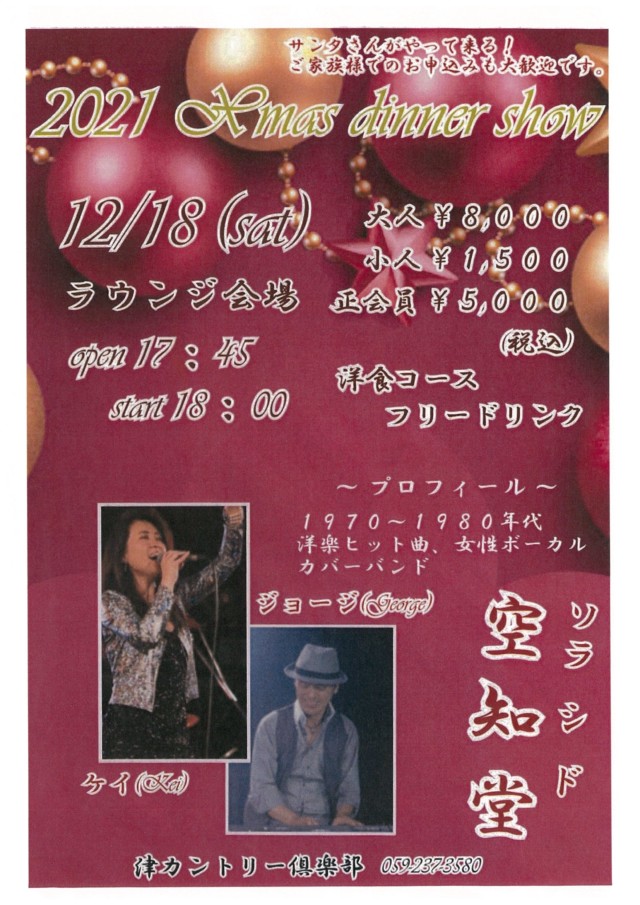 サンタさんがやって来る！
ご家族様でのお申込みも大歓迎です。
2021 Xmas dinner show
12/18 (sat)
ラウンジ会場
open 17：45
start 18：00
大人￥8,000
小人￥1,500
正会員￥5,000
(税込)
洋食コース
フリードリンク
～プロフィール～
１９７０～１９８０年代
洋楽ヒット曲、女性ボーカル
カバーバンド
ジョージ(George)
ケイ(Kei)
ソラシド
空知堂
津カントリー倶楽部 059-237-3580